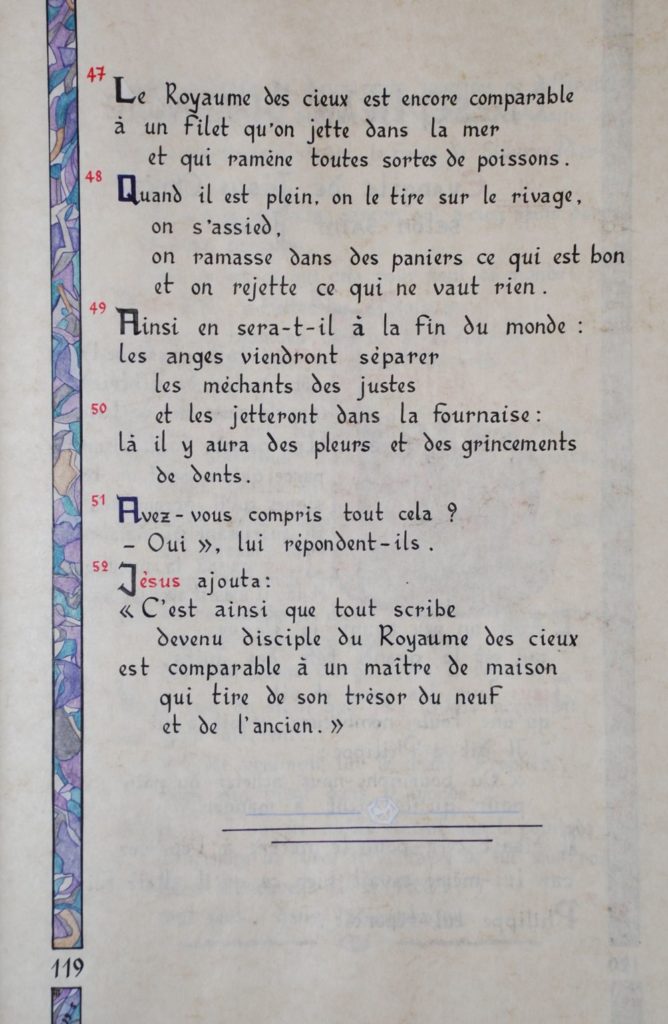 47 Le Royaume des cieux est encore comparable
à un filet qu'on jette dans la mer
et qui ramène toutes sortes de poissons.
48 Quand il est plein, on le tire sur le rivage,
on s'assied,
on ramasse dans des paniers ce qui est bon
et on rejette ce qui ne vaut rien.
49 Ainsi en sera-t-il à la fin du monde :
les anges viendront séparer
les méchants des justes
50 et les jetteront dans la fournaise :
là il y aura des pleurs et des grincements
de dents.
51 Avez-vous compris tout cela ?
– Oui », lui répondent-ils.
52 Jésus ajouta :
« C'est ainsi que tout scribe
devenu disciple du Royaume des cieux
est comparable à un maître de maison
qui tire de son trésor du neuf
et de l'ancien. »
119